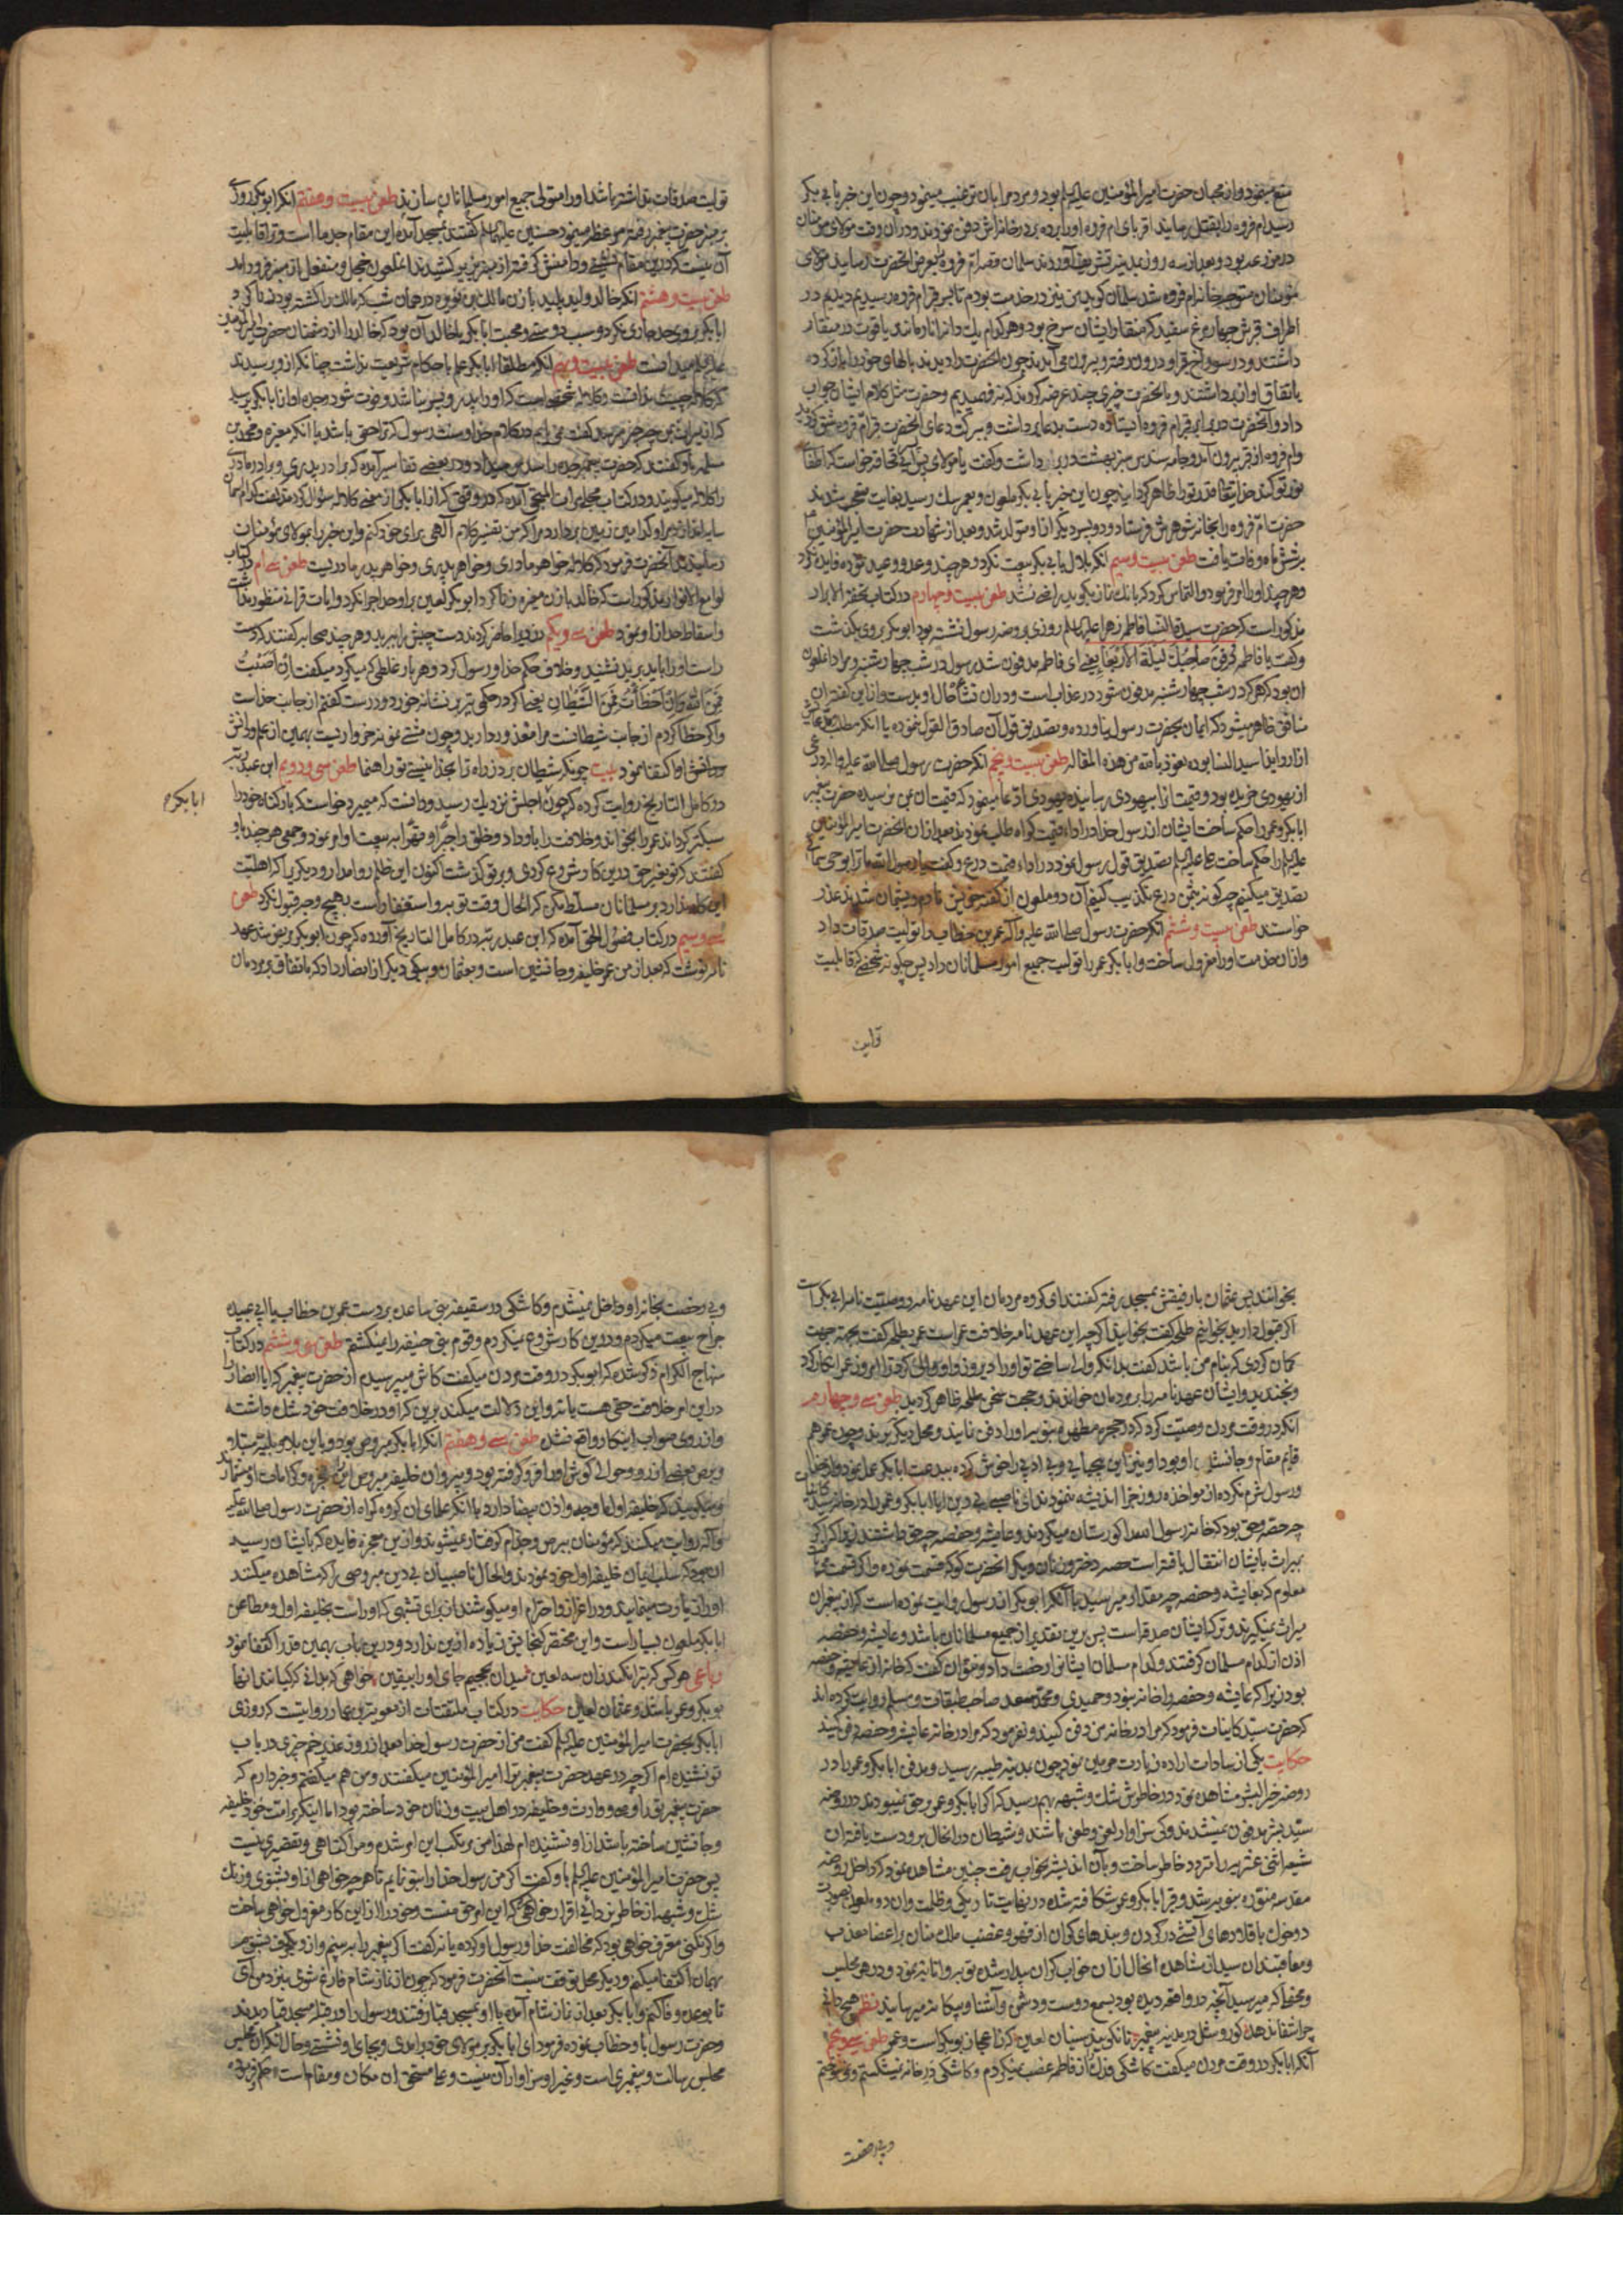 منع مینمود و از محبان حضرت امیرالمؤمنین علیه السلم بود و مردم را بان ترغیب مینمود و چون این خبر بابی بکر
رسید ام فروه را بقتل رسانید اقربای ام فروه او را برده در خانه اش دفن نمودند و در آن وقت مولای مومنان
در مزرعه بود و بعد از سه روز بمدینه تشریف آوردند سلمان قصه ام فروه بعرض انحضرت رسانید مولای
مومنان متوجه خانه ام فروه شد سلمان کوید من نیز در خدمت بودم تا بسر قبر ام فروه رسیدیم دیدیم در
اطراف قبرش چهار مرغ سفید که منقار ایشان سرخ بود و هر کدام یك دانه انار مانند یاقوت در منقار
داشتند و در سوراخ قبر او درون رفته و بیرون می آمدند چون انحضرت را دیدند بالهای خود را باز کرده
باتفاق اواز برداشتند و بانحضرت چیزی چند عرضه کردند که نفهمیدیم و حضرت مثل کلام ایشان جواب
داد و آنحضرت در برابر قبر ام فروه ایستاده دست بدعا برداشت و ببرکت دعای انحضرت قبر ام فروه شق کردید
وام فروه از قبر بیرون آمد و جامه سندس سبز بهشت در بر داشت و کفت یا مولای پسر ابی قحافه خواست که اطفای
نور تو کند خدایتعالی قدر تو را ظاهر کردانید چون این خبر بابی بکر ملعون و بعمر سك رسید بغایت متحیر شدند
حضرت ام فروه را بخانه شوهرش فرستاد و دو پسر دیگر از او متولد شد و بعد از شهادت حضرت امیرالمؤمنین
بشش ماه وفات یافت طعن بیست و سیم انکه بلال بابی بکر بیعت نکرد هر چند وعد و وعید نموده فایده نکرد
و هر چند او را امر فرمود و التماس کرد که بانك نماز بکوید راضی نشد طعن بیست و چهارم در کتاب تحفة الابرار
مذکور است که حضرت سیدة النسا فاطمه زهرا علیها السلم روزی بر روضه رسول نشسته بود ابوبکر بر وی بگذشت
و کفت یا فاطمه دُفِنَ صاحِبُكِ لَیلَةَ الاَربَعا یعنی ای فاطمه مدفون شد رسول در شب چهارشنبه و مراد ان ملعون
ان بود که هر که در شب چهارشنبه مدفون شود در عذاب است
ازار وایذا سید النسا بوده نعوذ بالله من هذه المقاله طعن بیست و پنجم انکه حضرت رسول صلی الله علیه و اله درعی
از یهودی خریده بود و قیمت انرا بیهودی رسانیده یهودی ادعا مینمود که قیمت ان بمن نرسیده حضرت پیغمبر
ابابکر و عمر را حکم ساخت ایشان از رسول خدا در اداء قیمت کواه طلب نمودند بعد از ان انحضرت امیرالمؤمنین
علیه السلم را حکم ساخت علی علیه السلم تصدیق قول رسول نمود در اداء قیمت درع و کفت یا رسول الله ما ترا بوحی سمائی
تصدیق میکنیم چه کونه بثمن درع تکذیب کنیم آن دو ملعون از کفته خویش نادم و پشیمان شدند عذر
خواستند طعن بیست و ششم انکه حضرت رسول صلی الله علیه و آله عمر بن خطاب را تولیت صدقات داد
و از ان خدمت او را معزول ساخت و ابابکر عمر را تولیت جمیع امور مسلمانان داد پس چکونه شخصی که قابلیت
تولیت
تولیت صدقات نداشته باشد او را متولی جمیع امور مسلمانان سازند طعن بیست و هفتم انکه ابوبکر روزی
بر منبر حضرت پیغمبر رفته موعظه مینمود حسنین علیهما السلم کفتند بمسجد آمده این مقام جد ما است و ترا قابلیت
آن نیست که در این مقام نشینی و دامنش کرفته از منبر بزیر کشیدند ان ملعون خجل و منفعل از منبر فرود امد
طعن بیست و هشتم انکه خالد ولید پلید با زن مالك بن نویره در همان شب که مالك را کشته بود زنا کرد و
ابابکر بر وی حد جاری نکرد و سبب دوستی و محبت ابابکر با خالد آن بود که خالد را از دشمنان حضرت امیرالمؤمنین
علیه السلم میدانست طعن بیست و نهم انکه مطلقا ابابکر علم باحکام شریعت نداشت چنانکه از او پرسیدند
که کلاله چیست ندانست
کر انمیراث بمن چیز میرسد کفت نمی یابم در کلام خدا و سنت رسول که ترا حقی باشد با انکه مغیره و محمد بن
سلمه باو کفتند که حضرت پیغمبر جده را سدس میداد و در بعضی تفاسیر آمده که برادر پدری و برادر مادری
را کلاله میکویند و در کتاب مجلی مرات المنجی آمده که در وقتی که از ابابکر از معنی کلاله سوال کردند کفت کدام سمان
سایه اندازد مرا و کدامین زمین بردارد مرا که من تفسیر کلام آلهی برای خود کنم و این خبر را بمولای مؤمنان
رسانیدند آنحضرت فرمود که کلاله خواهر مادری و خواهر پدری و خواهر پدر مادریست طعن سی ام در کتاب
لوامع الانوار مذکور است که خالد با زن مغیره زنا کرد ابوبکر لعین بر او حد اجرا نکرد و ایات قرانی منظور نداشت
و اسقاط حد از او نمود طعن سی و یکم دزدیرا حاضر کردند دست چپش را ببرید و هر چند صحابه کفتند که دست
راست او را باید برید نشنید و خلاف حکم خدا و رسول کرد و هر بار غلطی که میکرد میکفت اِن اَصَبتُ
فَمِنَ الله وَ اِن اَخطَأتُ فَمِنَ الشَّیطان یعنی اکر در حکمی تیر بر نشانه خورد و درست کفتم از جانب خدا است
و اکر خطا کردم از جانب شیطانست مرا معذور دارید و چون مشتی نمونه خرواریست بهمین از علم و دانش
او اکتفا نمود بیت چونکه شیطان بردز راه ترا بخدا نیستی تو راهنما طعن سی و دویم ابن عبد ربه
در کامل التاریخ روایت کرده که چون اجلش نزدیك رسید و دانست که میمیرد خواست که بار کناه خود را
ابابکر م
سبکتر کرداند عمر را بخواند و خلافت را باو داد و خلق را جبراً و قهراً ببیعت او امر نمود و جمعی هر چند باو
کفتند که تو بغیر حق درین کار شروع کردی و بر تو کذشت اکنون این ظلم روا مدار و دیکریرا که اهلیت
این کار ندارد بر مسلمانان مسلط مکن که الحال وقت توبه و استغفار است بهیچ وجه قبول نکرد طعن
سی و سیم در کتاب فصول الحق آمده که ابن عبد ربه در کامل التاریخ آورده که چون ابوبکر مریض شد عهد
نامه نوشت که بعد از من عمر خلیفه و جانشین است و بعثمان و یکی دیگر از انصار داد که باتفاق بر مردمان
بخوانند پس عثمان با رفیقش بمسجد رفته کفتند ای کروه مردمان این عهدنامه و وصیت نامه ابی بکر است
اکر قبول دارید بخوانیم طلحه کفت بخوانید اکر چه این عهد نامه خلافت عمر است عمر بطلحه کفت بچه جهت
کمان کردی که بنام من باشد کفت بدانکه والی ساختی تو او را دیروز و او والی کرد ترا امروز عمر انکار کرد
و بخندید و ایشان عهدنامه را بر مردمان خواندند و حجت سخن طلحه ظاهر کردید طعن سی و چهارم
انکه در وقت مردن وصیت کرد که در حجره مطهره نبویه او را دفن نمایند و محل دیگر نبرند و چون عمر هم
قایم مقام و جانشین او بود او نیز این بیحیایی و بی ادبی را خوش کرده ببدعت ابابکر عمل نمود و از خدا
و رسول شرم نکرده از مواخذه روز جزا اندیشه ننمودند ای ناصبی بی دین ایا ابابکر و عمر را در خانه سید کاینات
چه حصه و حق بود که خانه رسول الله را کورستان میکردند و عایشه و حفصه چه حق داشتند زیرا که اکر
بمیراث بایشان انتقال یافته است حصه دختر و زنان دیگر انحضرت کو که قسمت نموده و اکر قسمت میشد
معلوم که بعایشه و حفصه چه مقدار میرسید با آنکه ابوبکر از رسول روایت نموده است که از پیغمبران
میراث نمیکیرند و ترکه ایشان صدقه است پس برین تقدیر از جمیع مسلمانان باشد و عایشه و حفصه
اذن از کدام مسلمان کرفتند و کدام مسلمان ایشانرا رخصت داد و نتوان کفت که خانه از عایشه و حفصه
بود زیرا که عایشه و حفصه را خانه نبود و حمیدی و محمد سعد صاحب طبقات و مسلم روایت کرده اند
که حضرت سید کاینات فرمود که مرا در خانه من دفن کنید و نفرمود که مرا در خانه عایشه و حفصه دفن کنید
حکایت یکی از سادات اراده زیارت حرمین نمود چون بمدینه طیبه رسید و مدفن ابابکر و عمر را در
روضه خیر البشر مشاهده نمود در خاطرش شك و شبهه بهم رسید که اکر ابابکر و عمر بر حق نمیبودند در روضه
سید بشر مدفون نمیشدند و کی سزاوار لعن و طعن باشند و شیطان در انحال برو دست یافته ان
شیعه اثنی عشریه را متردد خاطر ساخت و بآن اندیشه بخواب رفت چنین مشاهده نمود که داخل روضه
مقدسه منوره نبویه شد و قبر ابابکر و عمر شکافته شده در نهایت تاریکی و ظلمت و ان دو ملعون بصورت
دو خوك با قلادهای آتشی در کردن و بندهای کران از قهر و غضب ملك منان بر اعضا معذب
و معاقبند ان سید از مشاهده انحال از ان خواب کران بیدار شده توبه و انابه نمود و در هر مجلس
و محفلی که میرسید آنچه در واقعه دیده بود بسمع دوست و دشمن و آشنا و بیکانه میرسانید نظم هیچ دانی
چرا شفا ندهد کور و سغل در مدینه پیغمبر زانکه نزد سنیان لعین کز اعجاز بوبکر است و عمر طعن سی و پنجم
آنکه ابابکر در وقت مردن میکفت کاشکی فدك را از فاطمه غصب نمیکردم و کاشکی در خانه نمیشکستم و نمیسوختم
و بی رخصت
و بی رخصت بخانه او داخل نمیشدم و کاشکی در سقیفه بنی ساعده بر دست عمر بن خطاب یا ابی عبیده
جراح بیعت میکردم و درین کار شروع نمیکردم و قوم بنی حنیفه را نمیکشتم طعن سی و ششم در کتاب
منهاج الکرام ذکر شده که ابوبکر در وقت مردن میکفت کاش میپرسیدم از حضرت پیغمبر که ایا انصار را
در این امر خلافت حقی هست یا نه و این دلالت میکند برین که او در خلافت خود شك داشته
و از روی صواب اینکار واقع نشد طعن سی و هفتم انکه ابابکر مبروص بود و باین بلا و بلیه مبتلا و
برص بعضی از رو و حوالی کوش او را فرو کرفته بود و پیروان خلیفه مبروص این را معجزه و کرامات او شمارند
و میکویند که خلیفه اول ما وجه و اذن بیضا دارد با انکه علمای ان کروه کمراه از حضرت رسول صلی الله علیه
و آله روایت میکنند که مؤمنان ببرص و جذام کرفتار نمیشوند و ازین معجزه فایده که بایشان رسید
ان بود که سلب ایمان خلیفه اول خود نمودند و الحال ناصبیان بی دین مبروصی را که مشاهده میکنند
او را زیارت مینمایند و در اعزاز و احترام او میکوشند از برای تشبهی که او راست بخلیفه اول و مطاعن
ابابکر ملعون بسیار است و این مختصر کنجایش زیاده ازین ندارد و درین باب بهمین قدر اکتفا نمود
رباعی هر کس که تبرا نکند زان سه لعین میدان بجحیم جای او را بیقین خواهی که بدانی که کیانند انها
بوبکر و عمر باشد و عثمان لعین حکایت در کتاب ملتقطات از معویة بن عمار روایتست که روزی
ابابکر بحضرت امیرالمؤمنین علیه السلم کفت من از حضرت رسول خدا بعد از روز غدیر خم چیزی در باب
تو نشنیده ام اکر چه در عهد حضرت پیغمبر ترا امیرالمؤمنین میکفتند و من هم میکفتم و خبر دارم که
حضرت پیغمبر تو را وصی و وارث و خلیفه در اهل بیت و زنان خود ساخته بود اما اینکه بر امت خود خلیفه
و جانشین ساخته باشد از او نشنیده ام لهذا من مرتکب این امر شدم و مرا کناهی و تقصیری نیست
پس حضرت امیرالمؤمنین علیه السلم باو کفت اکر من رسول خدا را بتو نمایم تا هر چه خواهی از او بشنوی و زنك
شك و شبهه از خاطر بزدائی اقرار خواهی کرد این امر حق منست و خود را از این کار معزول خواهی ساخت
و اکر نکنی معترف خواهی بود که مخالفت خدا و رسول او کرده یا نه کفت اکر پیغمبر را ببینم و از او یکحرف بشنوم
بهمان اکتفا میکنم و دیکر محل توقف نیست آنحضرت فرمود که چون از نماز شام فارغ شوی بنزد من آی
تا بوعده وفا کنم و ابابکر بعد از نماز شام آمده با او بمسجد قبا رفتند و رسول را در قبله مسجد قبا دیدند
و حضرت رسول باو خطاب نموده فرمود ای ابابکر بر مولای خود برامدی و بجای او نشستی و حال انکه ان مجلس
مجلس رسالت و پیغمبری است و غیر او سزاوار آن نیست و علی مستحق ان مکان و مقام است